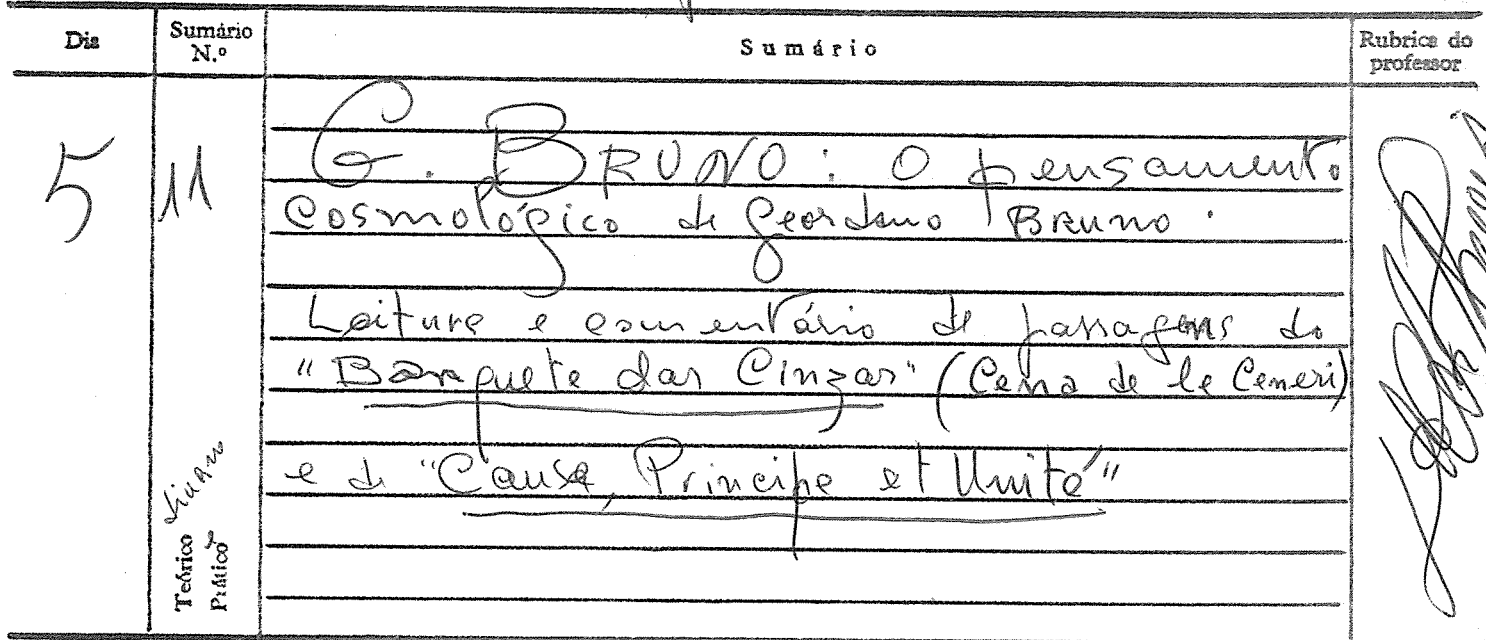 Dia Sumário N.º Sumário Rubrica do professor
5 11 G. BRUNO: O pensamento
Cosmológico de Geordano BRUNO.
Leitura e comentário de passagens do
"Banquete das Cinzas" (Cena de le Ceneri)
e de "Cause, Principe et Unité"
Teórico
Prático